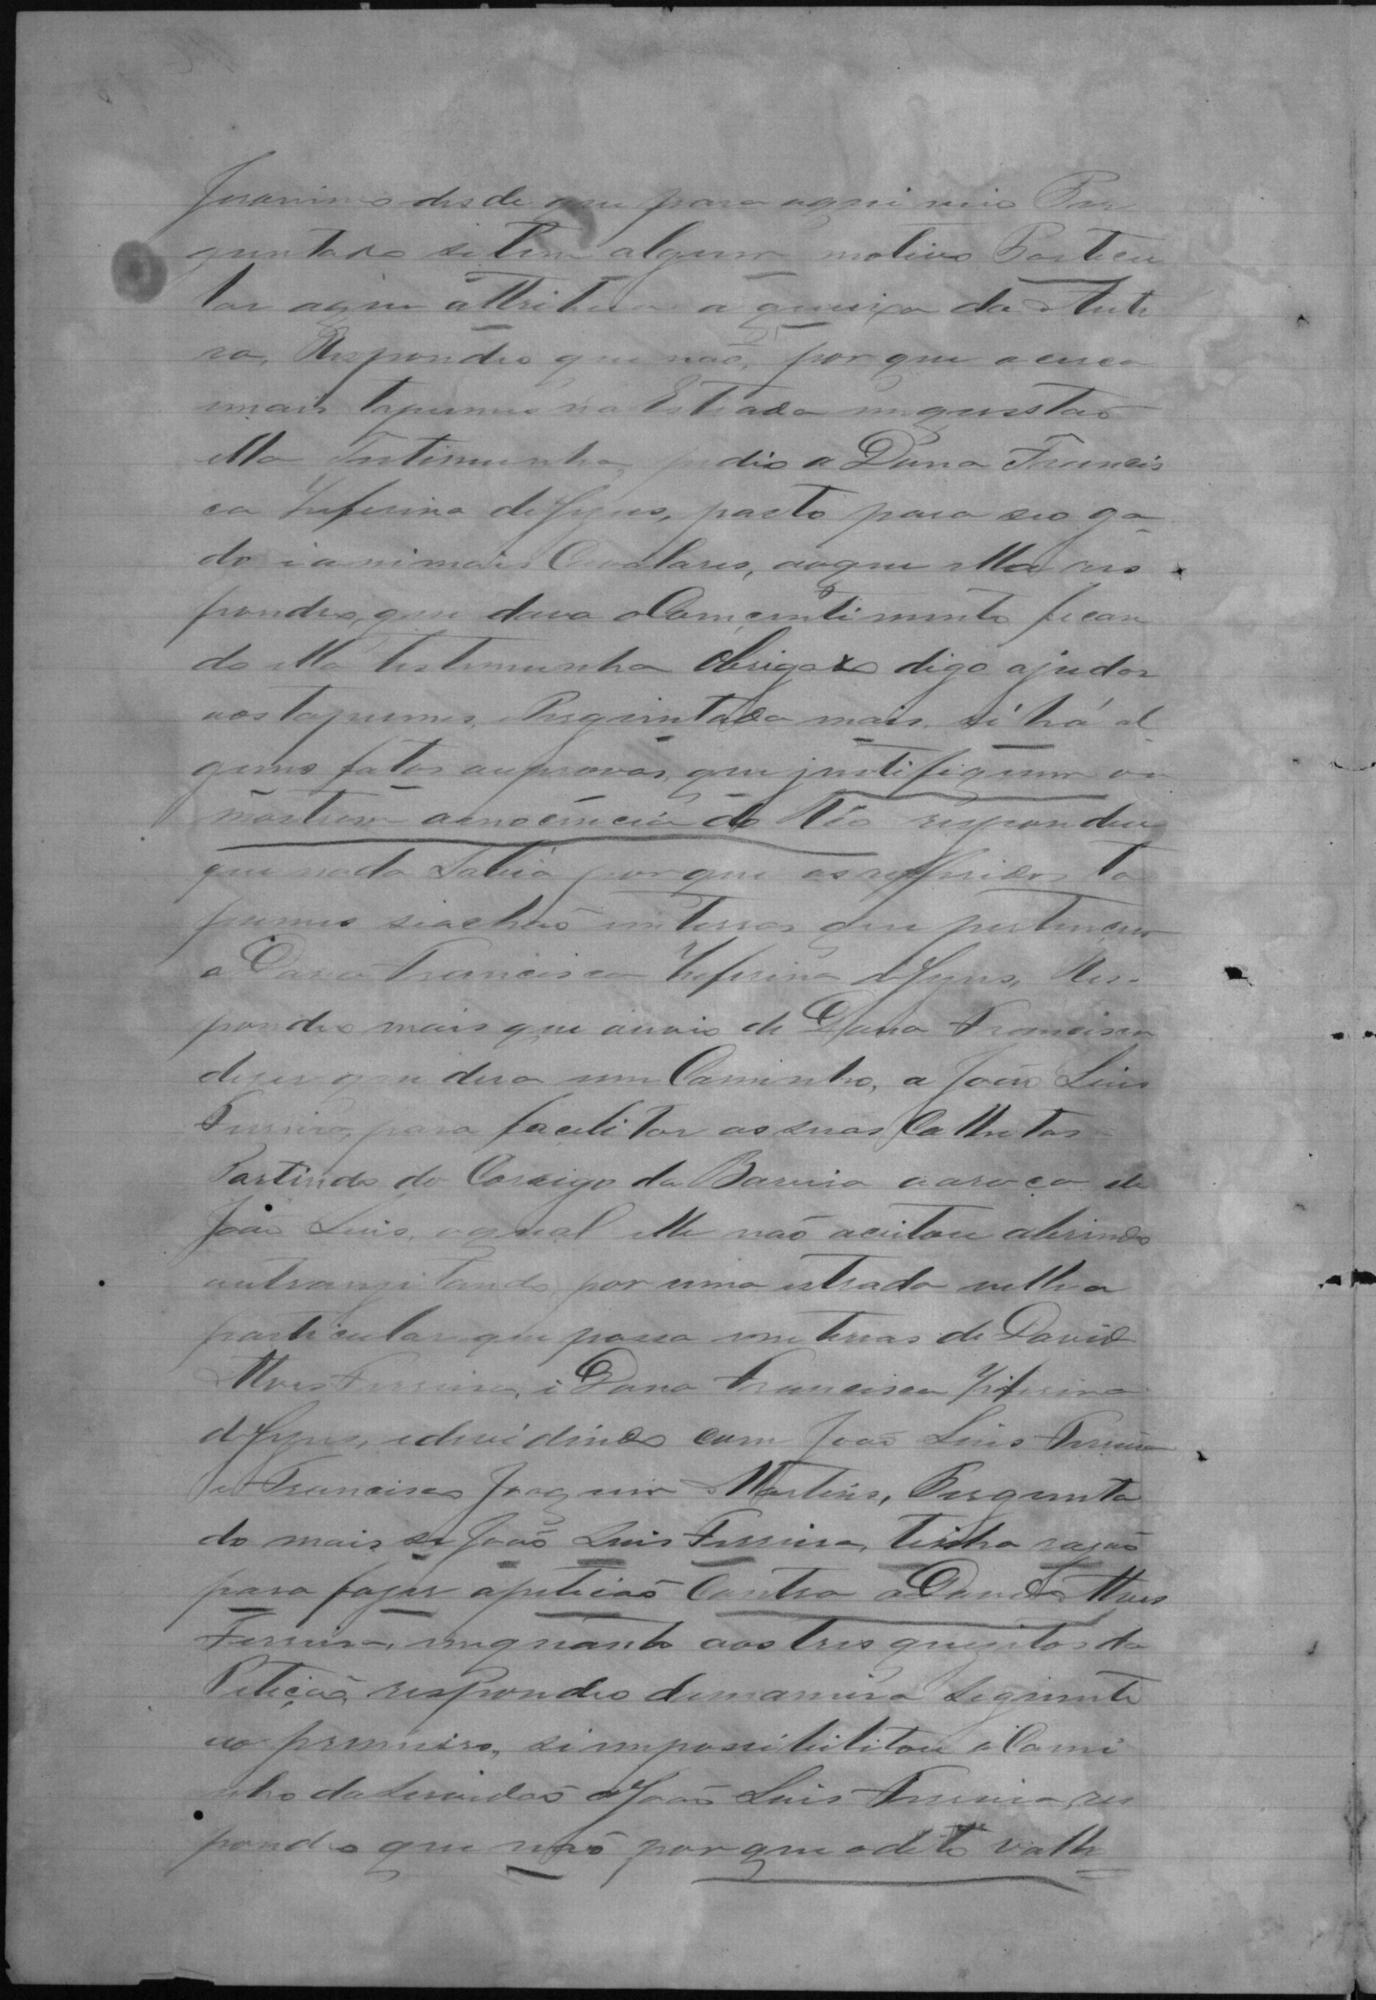 Juranimo desde que para aqui veio Per
guntado si tem algum motivo Particu
lar aque attribua a queixa da Auto
ra, Respondeo que não, por que a cerca
mais tapumes na Estrada em questão
ella Testimunha, pedio a Dona Francis
ca Zeferina de Jesus, pacto para seo ga
do i animais Cavalares, aoque ella res
pondeo, que dava o Comcentimento fican
do ella testemunha obrigado digo ajudar
aos tapumes. Perguntada mais, si há al
guns fatos ou provas, que justifiquem ou
mostrem a enocencia do Réo respondeu
que nada Sabia por que os refferidos ta
pumes siachão em terras que pertencem
a Dona Francisca Zeferina de Jesus, Res-
pondeo mais que ouvio de Dona Francisca
dizer que dera um Caminho, a João Luis
Ferreira, para facilitar as suas Colheitas
Partindo do Corrigo da Barreira a a roça de
João Luis, o qual elle não aceitou abrindo
e transitando por uma estrada velha
particular que passa em terras de David
Alves Ferreira, i Dona Francisca Zeferina
de Jesus, e devidindo com João Luis Ferreira
e Francisco Joaquim Martins, Pergunta
do mais si João Luis Ferreira, tinha razão
para fazer a petição Contra a David Alves
Ferreira, em quanto aos tres quezitos da
Petição respondeo da maneira seguinte
ao primeiro, si impossibilitou o Cami
nho da Servidão de João Luis Ferreira, res
pondeo que não por que o dito vallo